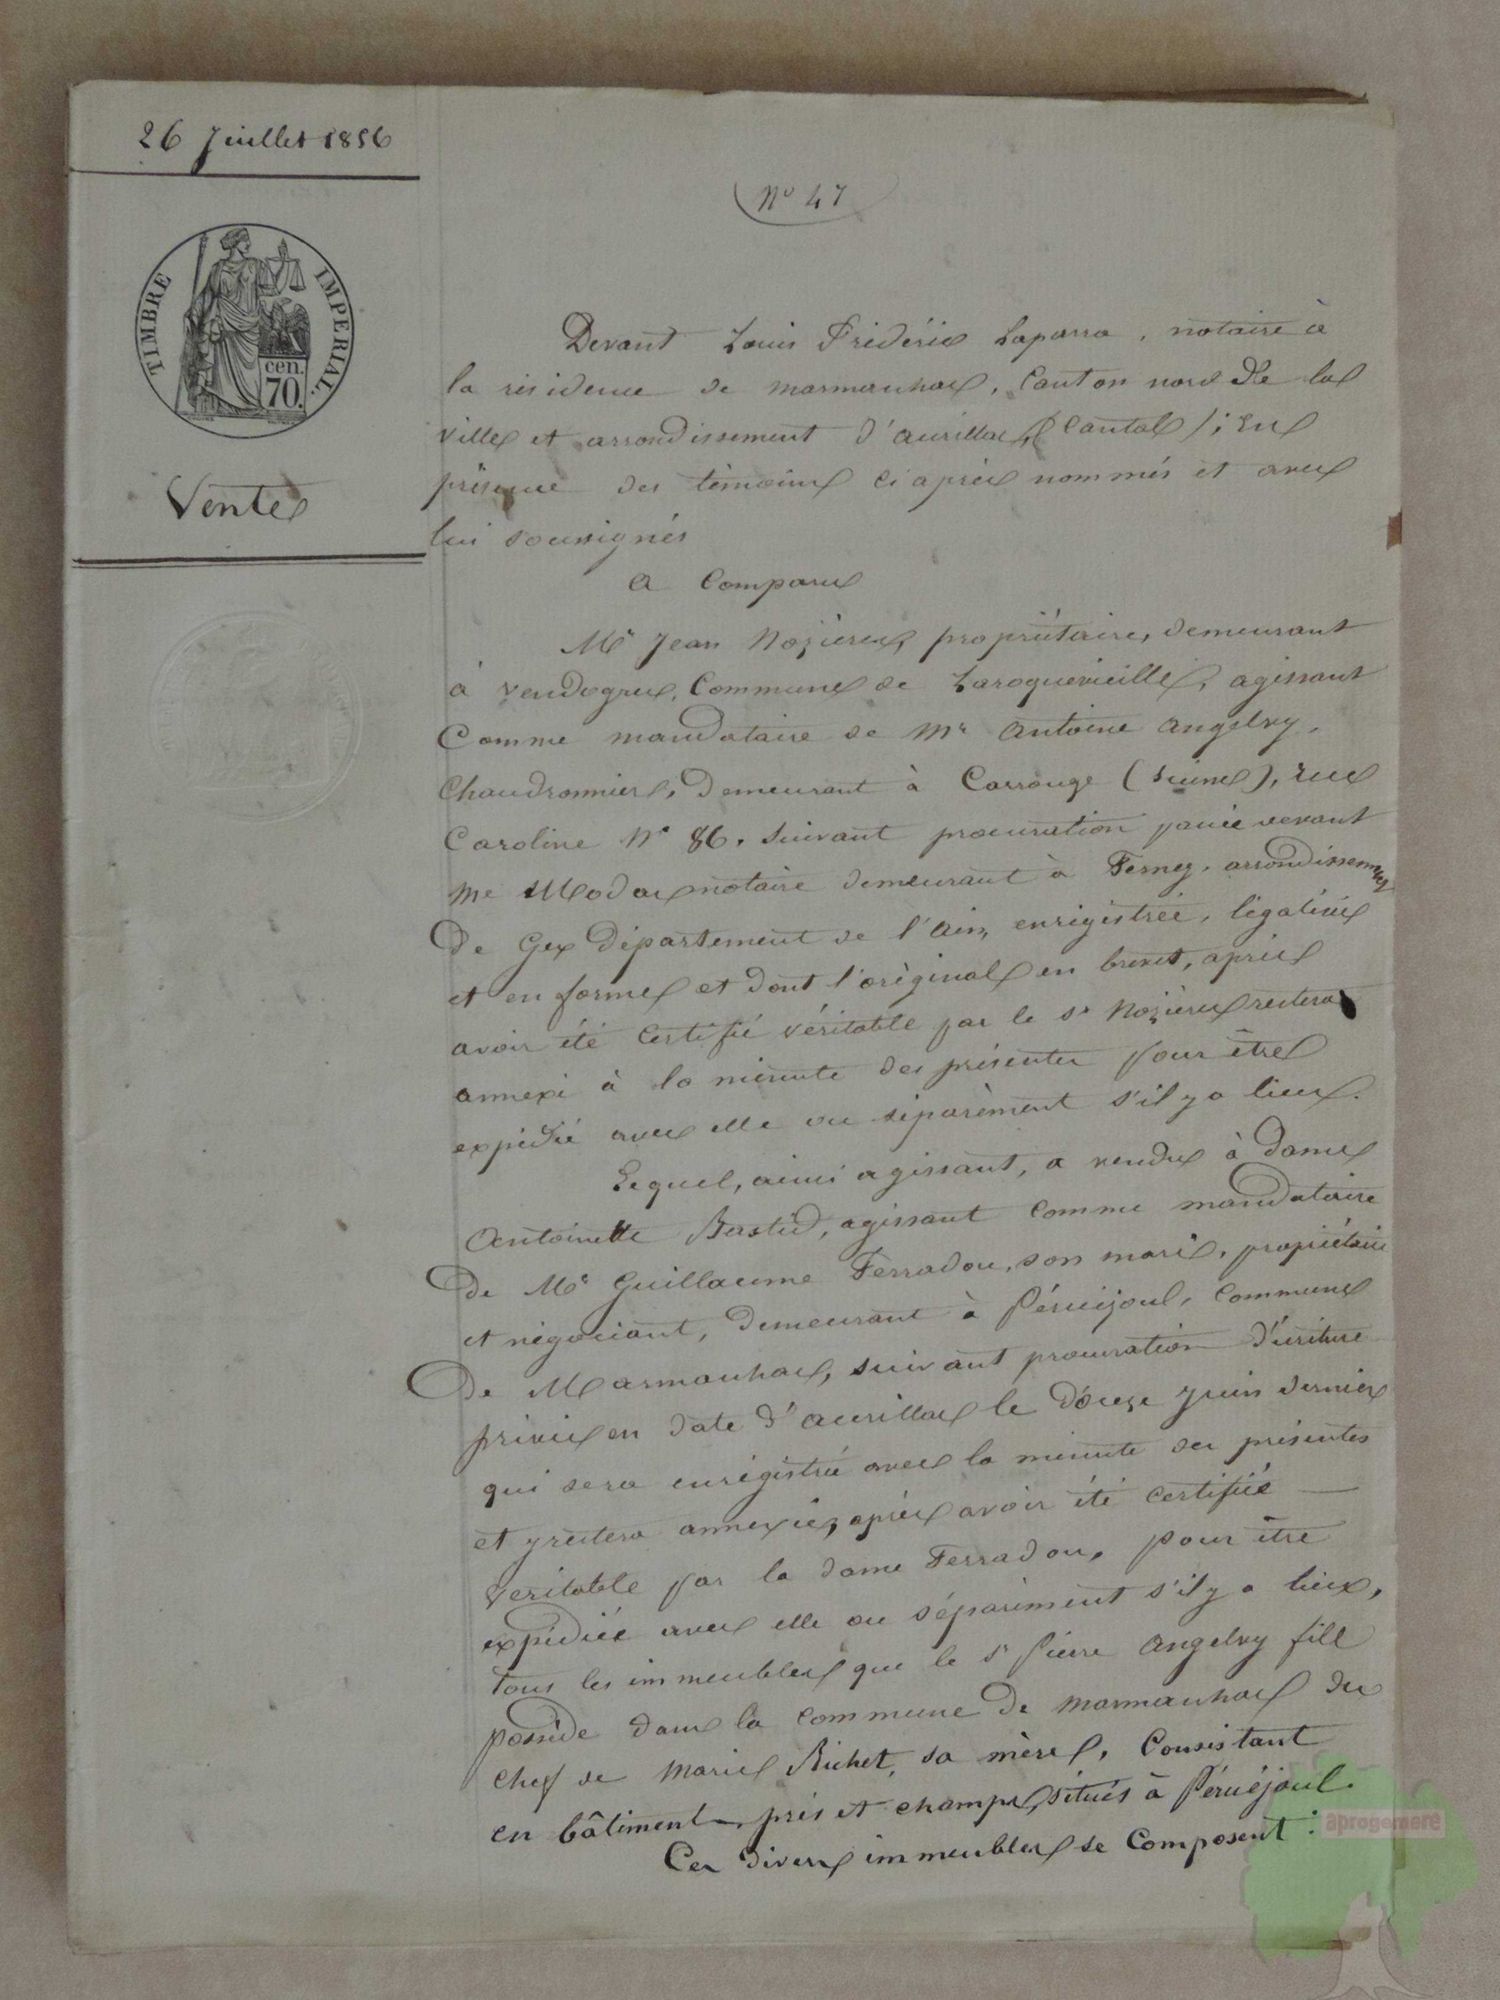 26 Juillet 1856
TIMBRE IMPERIAL.
cen.
70.
Vente
N° 47
Devant Louis Frédéric Laparra, notaire à
la résidence de Marmanhac, Canton nord de la
ville et arrondissement d'Aurillac, (Cantal); En
présence des témoins ci après nommés et avec
lui soussignés
A Comparu
Mr Jean Nozières, propriétaire, demeurant
à Commune de Laroquevieille, agissant
Comme mandataire de Mr Antoine Angelvy,
Chaudronnier, Demeurant à Carrouge (Suisse), rue
Caroline N° 86, suivant procuration passée devant
Me notaire demeurant à Ferney, arrondissement
De Gex Département de l'Ain, enregistrée, légalisée
et en forme et dont l'original en brevet, après
avoir été Certifié véritable par le Sr Nozières restera
annexé à la minute des présentes pour être
expédié avec elle ou séparément s'il y a lieu.
Lequel, ainsi agissant, a vendu à Dame
Antoinette Bastid, agissant comme mandataire
De Mr Guillaume Ferradou, son mari, propriétaire
et négociant, Demeurant à Péruéjoul, Commune
De Marmanhac, suivant procuration d'écriture
privée en date d'Aurillac le Douze Juin dernier
qui sera enrégistrée avec la minute des présentes
et y restera annexée, après avoir été certifiée
véritable par la dame Ferradou, pour être
expédiée avec elle ou séparément s'il y a lieu,
tous les immeubles que le Sr Pierre Angelvy fils
possède dans la commune de Marmanhac du
chef de Marie Richet, sa mère, Consistant
en bâtiment, prés et champs, situés à Péruéjoul.
Ces divers immeubles se Composent :
aprogemere